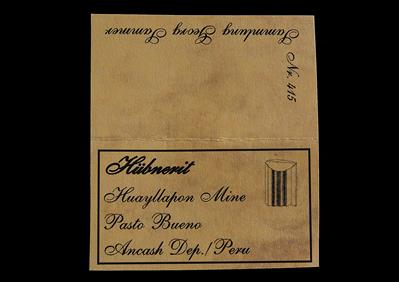 Sammlung Georg Sammer
Nr. 415
Hübnerit
Huayllapon Mine
Pasto Bueno
Ancash Dep./Peru